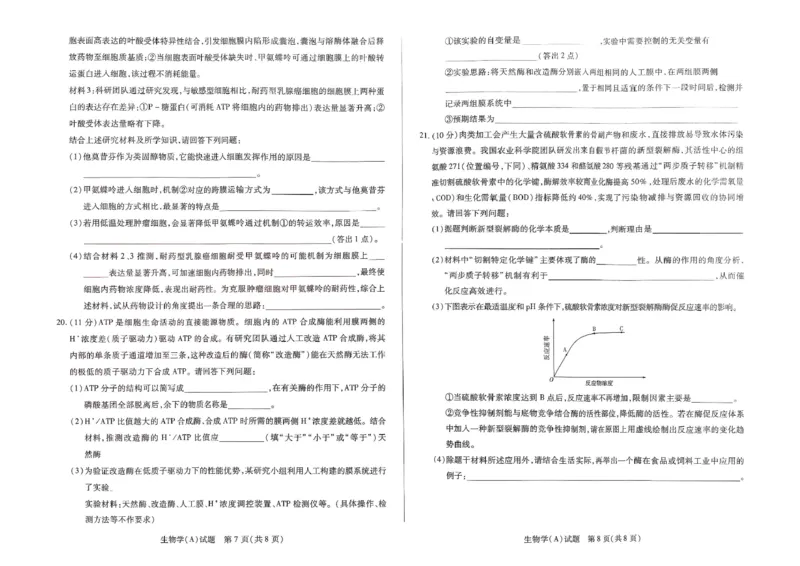 胞表面高表达的叶酸受体特异性结合,引发细胞膜内陷形成囊泡,囊泡与溶酶体融合后释
放药物至细胞质基质;②当细胞表面叶酸受体缺失时,甲氨蝶呤可通过细胞膜上的叶酸转
运蛋白进入细胞,该过程不消耗能量。
材料3:科研团队通过研究发现,与敏感型细胞相比,耐药型乳腺癌细胞的细胞膜上两种蛋
白的表达存在差异:①P-糖蛋白(可消耗 ATP 将细胞内的药物排出)表达量显著升高;②
叶酸受体表达量略有下降。
结合上述研究材料及所学知识,请回答下列问题:
(1)他莫昔芬作为类固醇物质,它能快速进入细胞发挥作用的原因是
。
(2)甲氨蝶呤进入细胞时,机制②对应的跨膜运输方式为 ,该方式与他莫昔芬
进入细胞的方式相比,最显著的特点是 。
(3)若用低温处理肿瘤细胞,会显著降低甲氨蝶呤通过机制①的转运效率,原因是
(答出1点)。
(4)结合材料 2、3 推测,耐药型乳腺癌细胞耐受甲氨蝶呤的可能机制为细胞膜上
表达量显著升高,可加速细胞内药物排出,同时 ,最终使
细胞内药物浓度降低,表现出耐药性。为克服肿瘤细胞对甲氨蝶呤的耐药性,综合上
述材料,试从药物设计的角度提出一条合理的思路: 。
20. (11分)ATP 是细胞生命活动的直接能源物质。细胞内的 ATP 合成酶能利用膜两侧的
H⁺浓度差(质子驱动力)驱动 ATP 的合成。有研究团队通过人工改造 ATP 合成酶,将其
内部的单条质子通道增加至三条,这种改造后的酶(简称“改造酶”)能在天然酶无法工作
的极低的质子驱动力下合成 ATP。请回答下列问题:
(1)ATP 分子的结构可以简写成 ,在有关酶的作用下,ATP 分子的
磷酸基团全部脱离后,余下的物质名称是 。
(2)H⁺/ATP 比值越大的 ATP 合成酶,合成 ATP 时所需的膜两侧 H⁺浓度差就越低。结合
材料,推测改造酶的 H⁺/ATP 比值应 (填“大于”“小于”或“等于”)天
然酶
(3)为验证改造酶在低质子驱动力下的性能优势,某研究小组利用人工构建的膜系统进行
了实验。
实验材料:天然酶、改造酶、人工膜、H⁺浓度调控装置、ATP 检测仪等。(具体操作、检
测方法等不作要求)
生物学(A)试题 第7页(共8页)
①该实验的自变量是 ,实验中需要控制的无关变量有
(答出2点)
②实验思路:将天然酶和改造酶分别嵌入两组相同的人工膜中,在两组膜两侧
,置于相同且适宜的条件下一段时间后,检测并
记录两组膜系统中
③预期结果为
21. (10分)肉类加工会产生大量含硫酸软骨素的骨副产物和废水,直接排放易导致水体污染
与资源浪费。我国农业科学院团队研发出来自假节杆菌的新型裂解酶,其活性中心的组
氨酸271(位置编号,下同)、精氨酸334和酪氨酸280等残基通过“两步质子转移”机制精
准切割硫酸软骨素中的化学键,酶解效率较商业化酶提高50%,处理后废水的化学需氧量
(COD)和生化需氧量(BOD)指标降低约40%,实现了污染物减排与资源回收的协同增
效。请回答下列问题:
(1)据题判断新型裂解酶的化学本质是 ,判断理由是
。
(2)材料中“切割特定化学键”主要体现了酶的 性。从酶的作用的角度分析,
“两步质子转移”机制有利于 ,从而催
化反应高效进行。
(3)下图表示在最适温度和 pH 条件下,硫酸软骨素浓度对新型裂解酶酶促反应速率的影响。
反应速率
A
B
C
O
反应物浓度
①当硫酸软骨素浓度达到 B 点后,反应速率不再增加,限制因素主要是 。
②竞争性抑制剂能与底物竞争结合酶的活性部位,降低酶的活性。若在酶促反应体系
中加入一种新型裂解酶的竞争性抑制剂,请在原图上用虚线绘制出反应速率的变化趋
势曲线。
(4)除题干材料所述应用外,请结合生活实际,再举出一个酶在食品或饲料工业中应用的
例子: 。
生物学(A)试题 第8页(共8页)